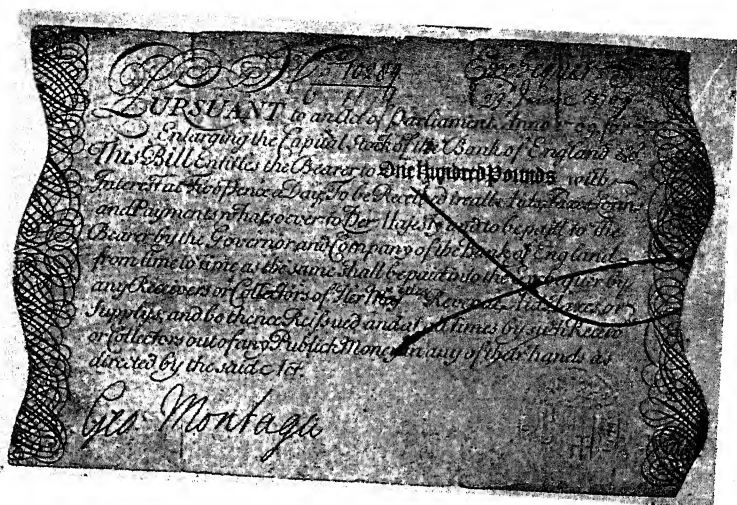 No 10289
29.
PURSUANT to an Act of Parliament Anno 1709 for
Enlarging the Capital Stock of the Bank of England &c
This Bill Entitles the Bearer to One Hundred Pounds with
Interest at Twopence a Day, To be Received in all
and Payments whatsoever to Her Majesty and to be paid to the
Bearer by the Governor and Company of the Bank of England
from time to time as the same shall be paid into the Exchequer by
any Receivers or Collectors of Her Revenue or
Supplys, and bothence Reissued and at all times by such
or Collectors out of any Publick Money in any of their hands as
directed by the said Act.
Geo: Montagu